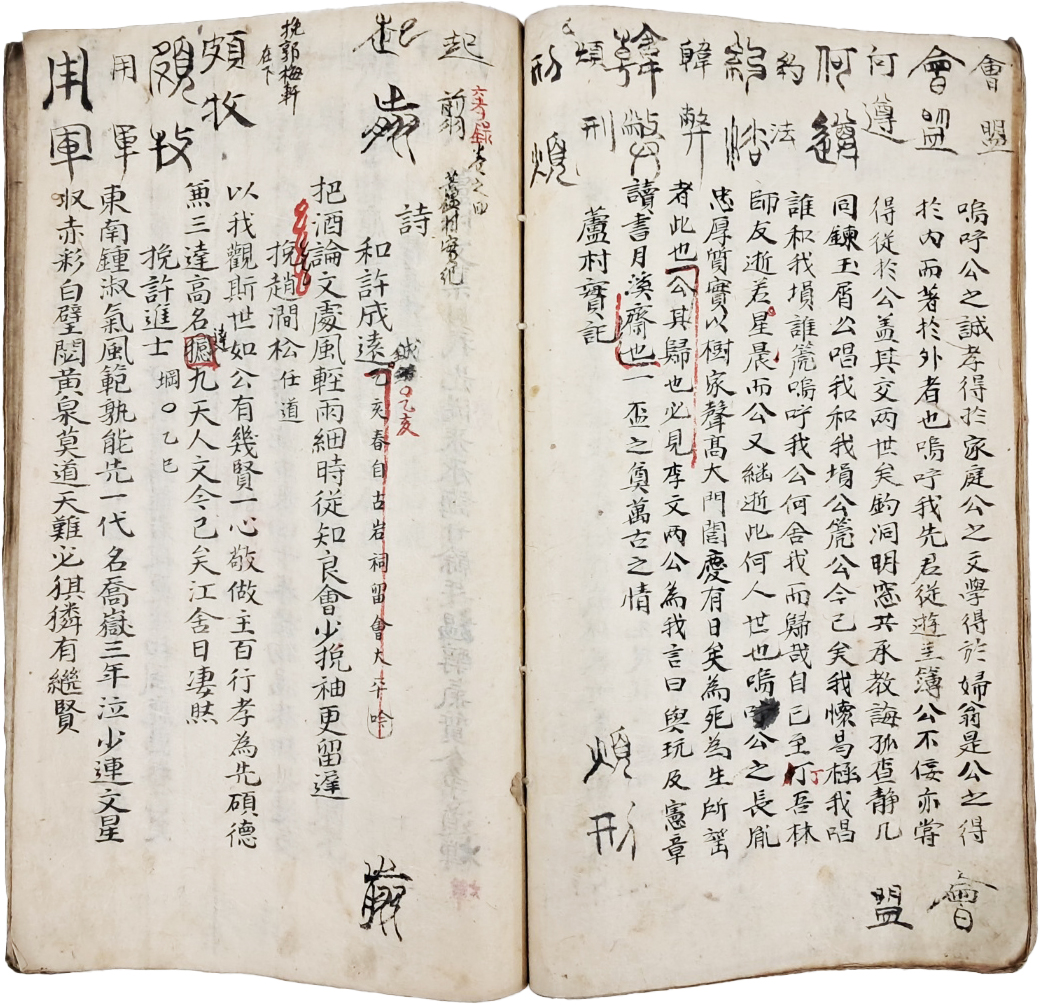 會盟
會盟
何遵
何遵
約法
約法
韓弊
韓弊
煩刑
煩刑
嗚呼公之誠孝得於家庭公之文學得於婦翁是公之得
於內而著於外者也嗚呼我先君從遊主簿公不佞亦嘗
得從於公盖其交兩世矣釣洞明窓共承教誨孤查靜几
同鍊玉屑公唱我和我塤公篪公今已矣我懷曷極我唱
誰和我塤誰篪嗚呼我公何舍我而歸哉自己至丁吾林
師友逝若星晨而公又繼逝此何人世也嗚呼公之長胤
忠厚質實以樹家聲高大門閭慶有日矣為死為生所謠
者此也公其歸也必見李文兩公為我言曰與玩及憲章
讀書月溪齋也一盃之奠萬古之情
蘆村實記
煩刑
會
盟
起
翦
六考錄卷之四
蘆村實紀
起翦
詩
和許成遠
誠
乙亥
乙亥春自古岩祠留會大平吟
把酒論文處風輕雨細時從知良會少挽袖更留遲
挽趙澗松任道
以我觀斯世如公有幾賢一心敬做主百行孝為先碩德
兼三達高名九天人文今已矣江舍日凄然
達
挽許進士堈乙巳
東南鍾淑氣風範孰能先一代名喬嶽三年泣少連文星
収赤彩白璧閟黃泉莫道天難必猉獜有繼賢
挽郭梅軒在下
頗牧
頗牧
用軍
用軍